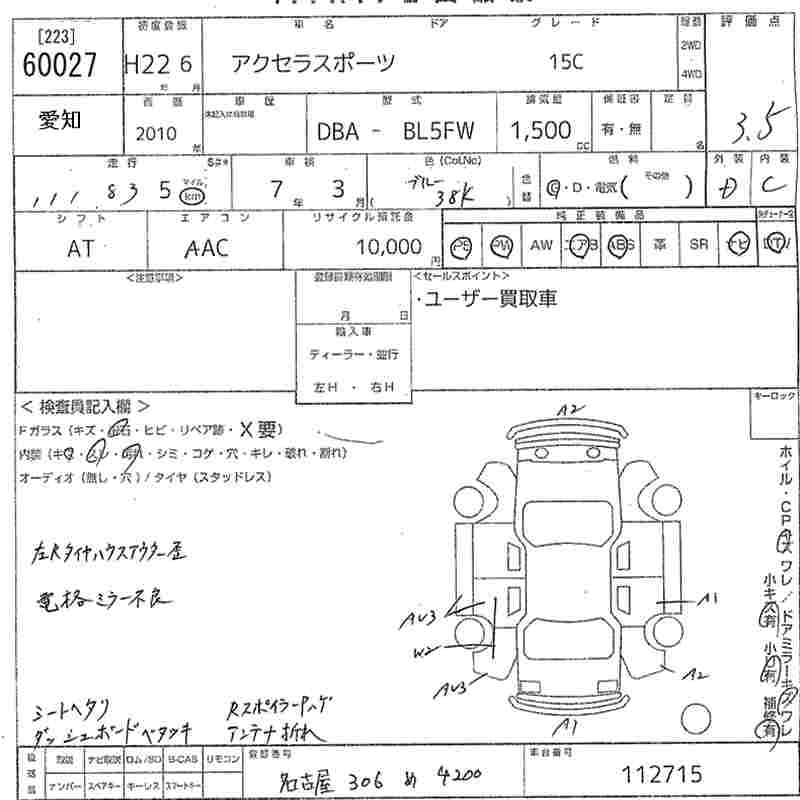 [223]
60027
初度登録
H22 6
年 月
車名 ドア グレード
アクセラスポーツ 15C
駆動
2WD
4WD
評価点
3.5
愛知
西暦
2010
年
車歴
未記入は自家用
型式
DBA - BL5FW
排気量
1,500
CC
保証書
有・無
定員
名
走行 S#*
111 835 マイル km
車検
7年 3月
色(Col.No)
ブルー
38K
色替
燃料
G・D・電気( その他 )
外装
D
内装
C
シフト
AT
エアコン
AAC
リサイクル預託金
10,000
円
純正装備品
PS PW AW エアB ABS 革 SR ナビ TV
<注意事項>
登録書類有効期限
月 日
輸入車
ディーラー・並行
左H・右H
<セールスポイント>
・ユーザー買取車
<検査員記入欄>
Fガラス(キズ・飛石・ヒビ・リペア跡・X要)
内装(キズ・スレ・汚れ・シミ・コゲ・穴・キレ・破れ・割れ)
オーディオ(無し・穴)/タイヤ(スタッドレス)
左Rタイヤハウスアウター歪
電格ミラー不良
シートヘタリ
ダッシュボードベタツキ
Rスポイラー
アンテナ折れ
A2
AU3
W2
AU3
A1
A2
A1
キーロック
ホイル・CPキズワレ/ドアミラーキズワレ
小キズ有 小凹有 補修有
後送部品
取説 ナビ取説 ロム/SD B-CAS リモコン
ナンバー スペアキー キーレス スマートキー
登録番号
名古屋 306 め 4200
車台番号
112715